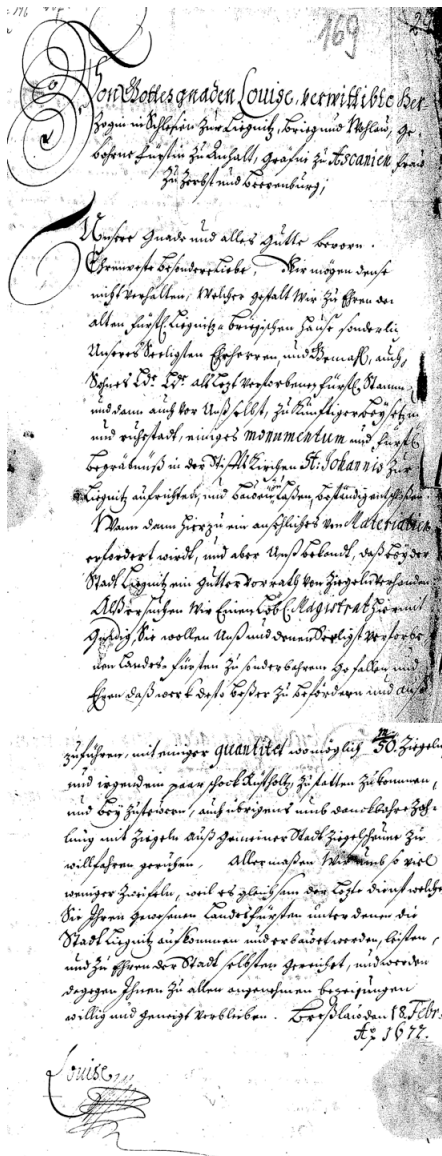 196
169
29
Von Gottes gnaden Louise, verwittibte Her-
zogin in Schlesien zur Liegnitz, Brieg und Wohlau, ge-
bohrne Fürstin zu Anhalt, Gräfin zu Ascanien, Frau
zu Zerbst und Beerenburg,
Unsere Gnade und alles Gutte bevorn.
Ehrenveste Besondere Liebe, Wir mögen dense
nicht verhalten, Welcher gestalt Wir zu Ehren des
alten Fürstl. Liegnitz- briegischen Hauses sonderlich
Unseres Seeligsten Eheherren und Gemahl, auch
Sohnes Ldr. Ldr. als Lezt verstorbenen Fürstl. Stammes
und dann auch vor Unß selbst, zu künfftiger beysetzung
und ruhestadt, einiges monumentum und Fürstl.
begräbnüß in der Stifftskirchen St. Johannis zur
Liegnitz aufrichten, und laßen, beständig entschloßen.
Wann dann hierzu ein ansehliches von Materialien
erfordert wirdt, und aber Unß bekandt, daß bey der
Stadt Liegnitz ein gutter vorrath von Ziegeln verhanden
Alß ersuchen Wir Einen Löbl. Magistrat hiermit
gnädig, Sie wollen Unß und denen Seeligst verstorbe-
nen Landes-Fürsten zu sonderbahrem gefallen und
Ehren daß werk desto beßer zu befördern und auß
zuführen, mit einiger quantitet womöglich 50. Ziegeln
und irgend ein paar schock Rüstholtz zu statten zu kommen,
und bey zusteuren, auch übrigens umb danckbahre Zah-
lung mit Ziegeln auß gemeiner Stadt Ziegelscheune zu
willfahren geruhen. Allermaßen Wir umb so viel
weniger zweifeln, weil es gleichsam der Lezte dienst welchen
Sie Ihren gewesenen Landesfürsten unter denen die
Stadt Liegnitz aufkommen und erbawet worden, leisten,
und zu Ehren der Stadt selbsten gereichet, und werden
dagegen Ihnen zu allen angenehmen bezeigungen
willig und geneigt verbleiben. Breßlaw den 18. Febr.
Ao. 1677.
Louise